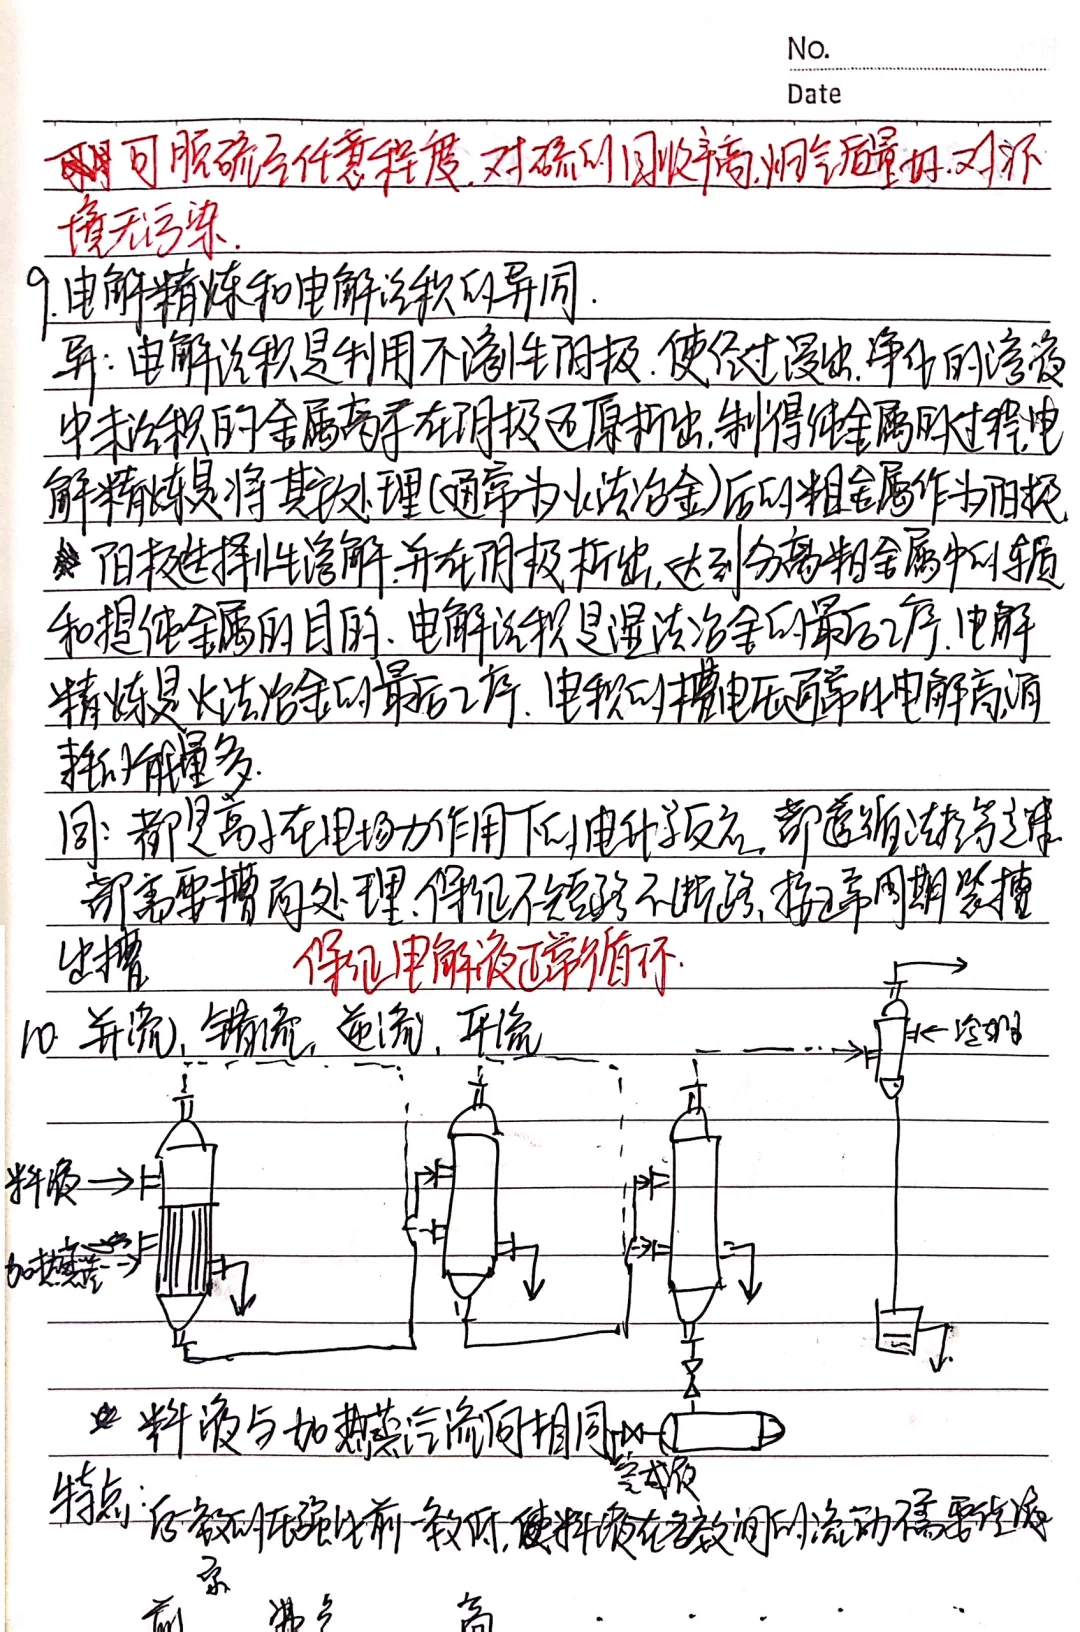 No.
Date
可脱硫至任意程度,对硫的回收率高,烟气质量好,对环
境无污染.
9.电解精炼和电解沉积的异同.
异:电解沉积是利用不溶性阴极.使经过浸出.净化的溶液
中未沉积的金属离子在阴极还原析出,制得纯金属的过程,电
解精炼是将其数处理(通常为火法冶金)后的粗金属作为阳极
阳极选择性溶解.并在阴极析出,达到分离粗金属中的杂质
和提纯金属的目的.电解沉积是湿法冶金的最后工序.电解
精炼是火法冶金的最后工序.电积的槽电压通常比电解高,消
耗的能量多.
同:都是离子在电场力作用下的电化学反应,都遵循法拉第定律
都需要槽面处理.保证不短路不断路,按正常周期装槽
出槽 保证电解液正常循环.
10. 并流,错流,逆流,平流
料液
加热蒸
料液与加热蒸汽流向相同
完成液
特点:后效的压强比前一效低,使料液在各效间的流动不需要
泵
前 沸点 高